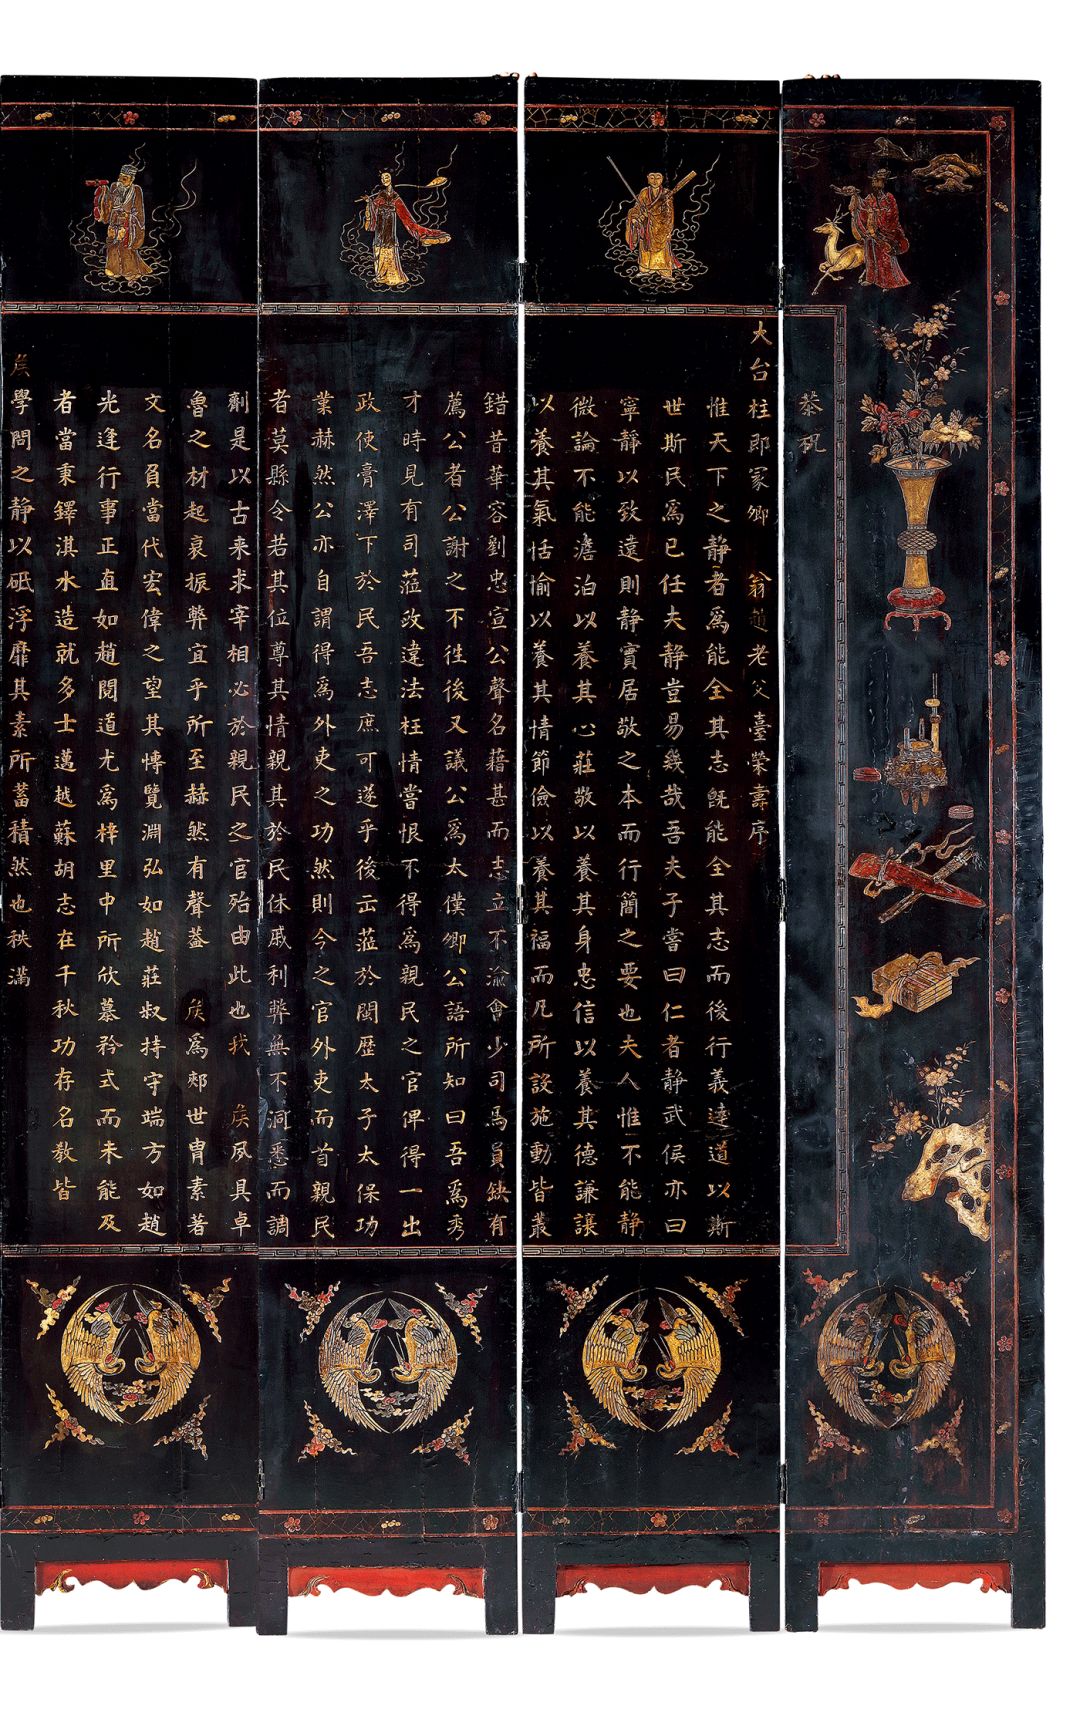 恭祝
大台柱即冢卿　翁趙老父臺榮壽序
惟天下之静者爲能全其志旣能全其志而後行義達道以斯
世斯民爲已任夫静豈易幾哉吾夫子嘗曰仁者静武侯亦曰
寧静以致遠則静實居敬之本而行簡之要也夫人惟不能静
微論不能澹泊以養其心莊敬以養其身忠信以養其德謙讓
以養其氣恬愉以養其情節儉以養其福而凡所設施動皆叢
錯昔華容劉忠宣公聲名藉甚而志立不渝會少司馬員缺有
薦公者公謝之不徃後又議公爲太僕卿公語所知曰吾爲秀
才時見有司蒞政違法枉情嘗恨不得爲親民之官俾得一出
政使膏澤下於民吾志庶可遂乎後云蒞於閩歷太子太保功
業赫然公亦自謂得爲外吏之功然則今之官外吏而首親民
者莫縣令若其位尊其情親其於民休戚利弊無不洞悉而調
劑是以古来求宰相必於親民之官殆由此也我　矦夙具卓
魯之材起衰振弊宜乎所至赫然有聲葢　矦爲郟世胄素著
文名負當代宏偉之望其慱覽淵弘如趙莊叔持守端方如趙
光逢行事正直如趙閱道尤爲梓里中所欣慕矜式而未能及
者當秉鐸淇水造就多士邁越蘇胡志在千秋功存名教皆
矦學問之静以砥浮靡其素所蓄積然也秩滿